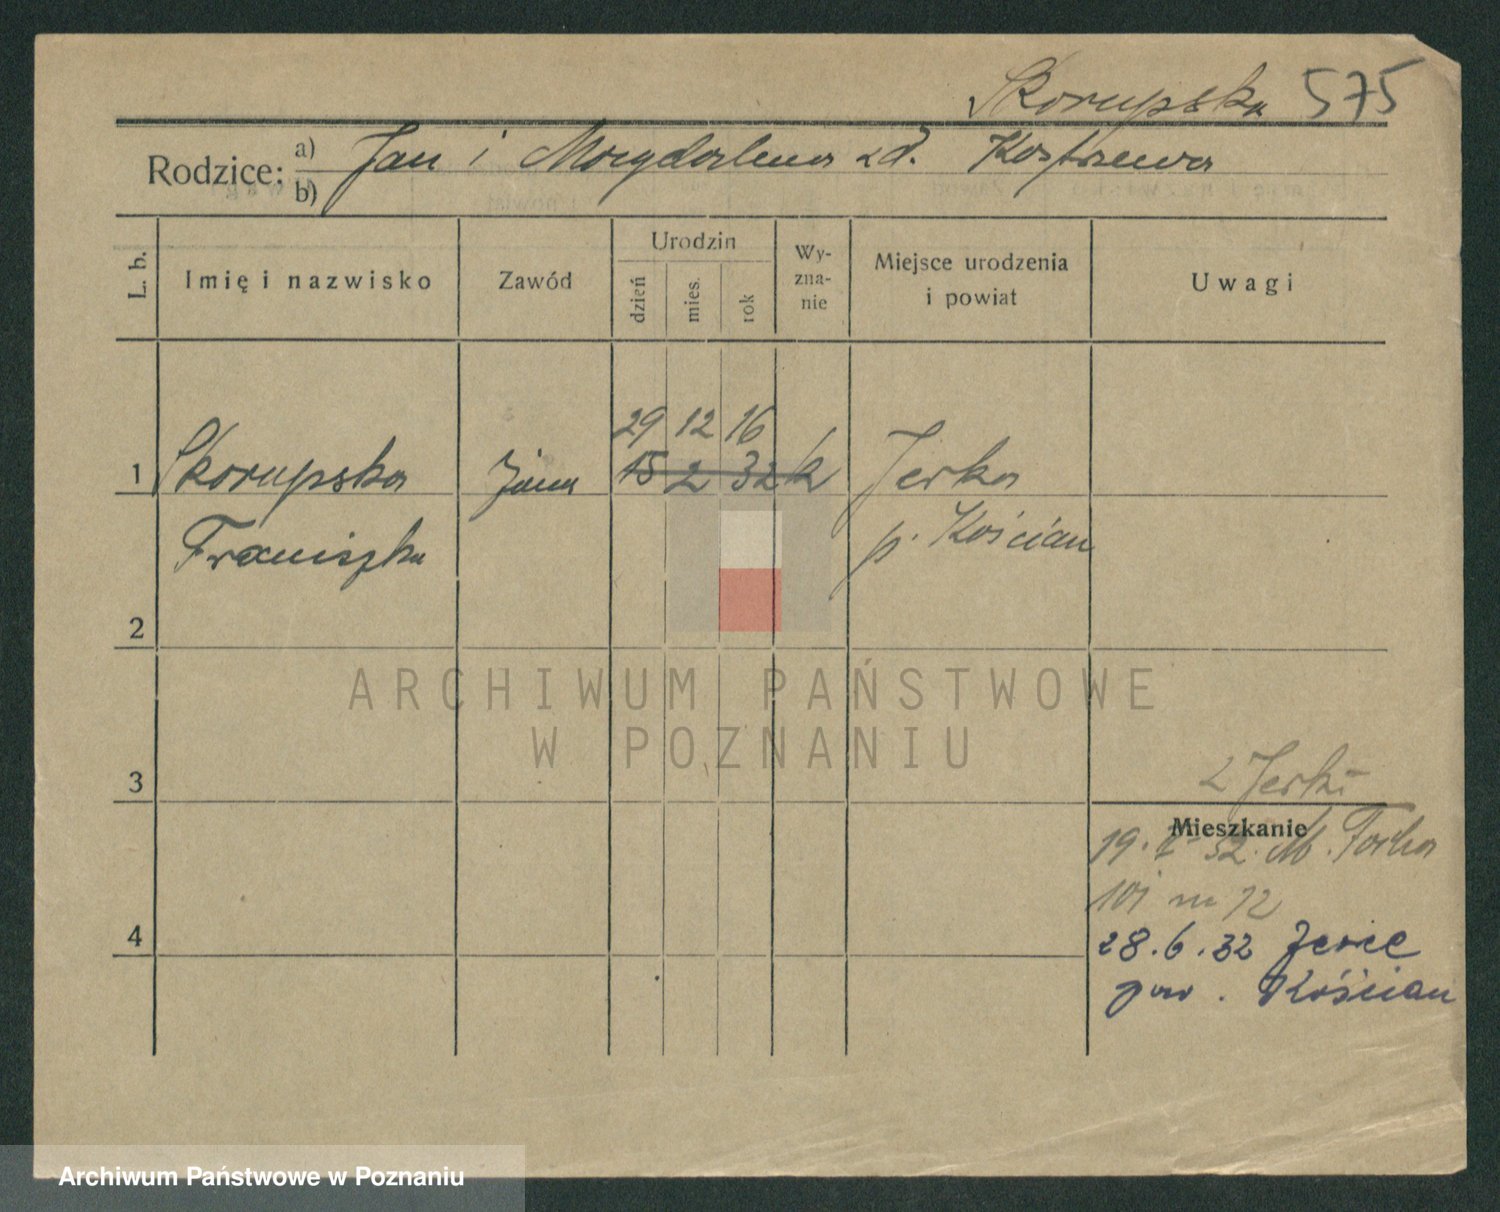 Skorupska 575
Rodzice: a) Jan i Magdalena zd. Kostrzewa
b)
L. b.
Imię i nazwisko
Zawód
Urodzin
dzień
mies.
rok
Wy-
zna-
nie
Miejsce urodzenia
i powiat
Uwagi
29 12 16
1 Skorupska 15 2 32 k Jerka
Franciszka p. Kościan
2
ARCHIWUM PAŃSTWOWE
W POZNANIU
3
z Jerki
Mieszkanie
19. 2 32. M. Focha
101 m 72
4
28.6.32
pow. Kościan
Archiwum Państwowe w Poznaniu